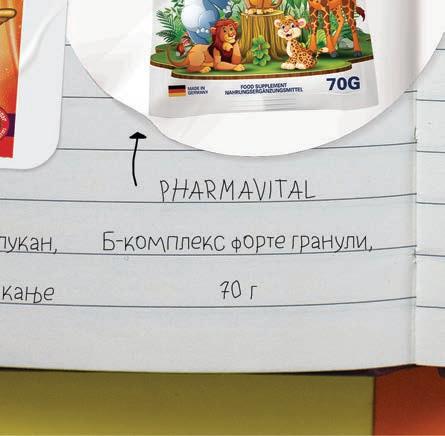 MADE IN
GERMANY
FOOD SUPPLEMENT
NAHRUNGSERGÄNZUNGSMITTEL
70G
PHARMAVITAL
лукан,
Б-комплекс форте гранули,
кање
70 г